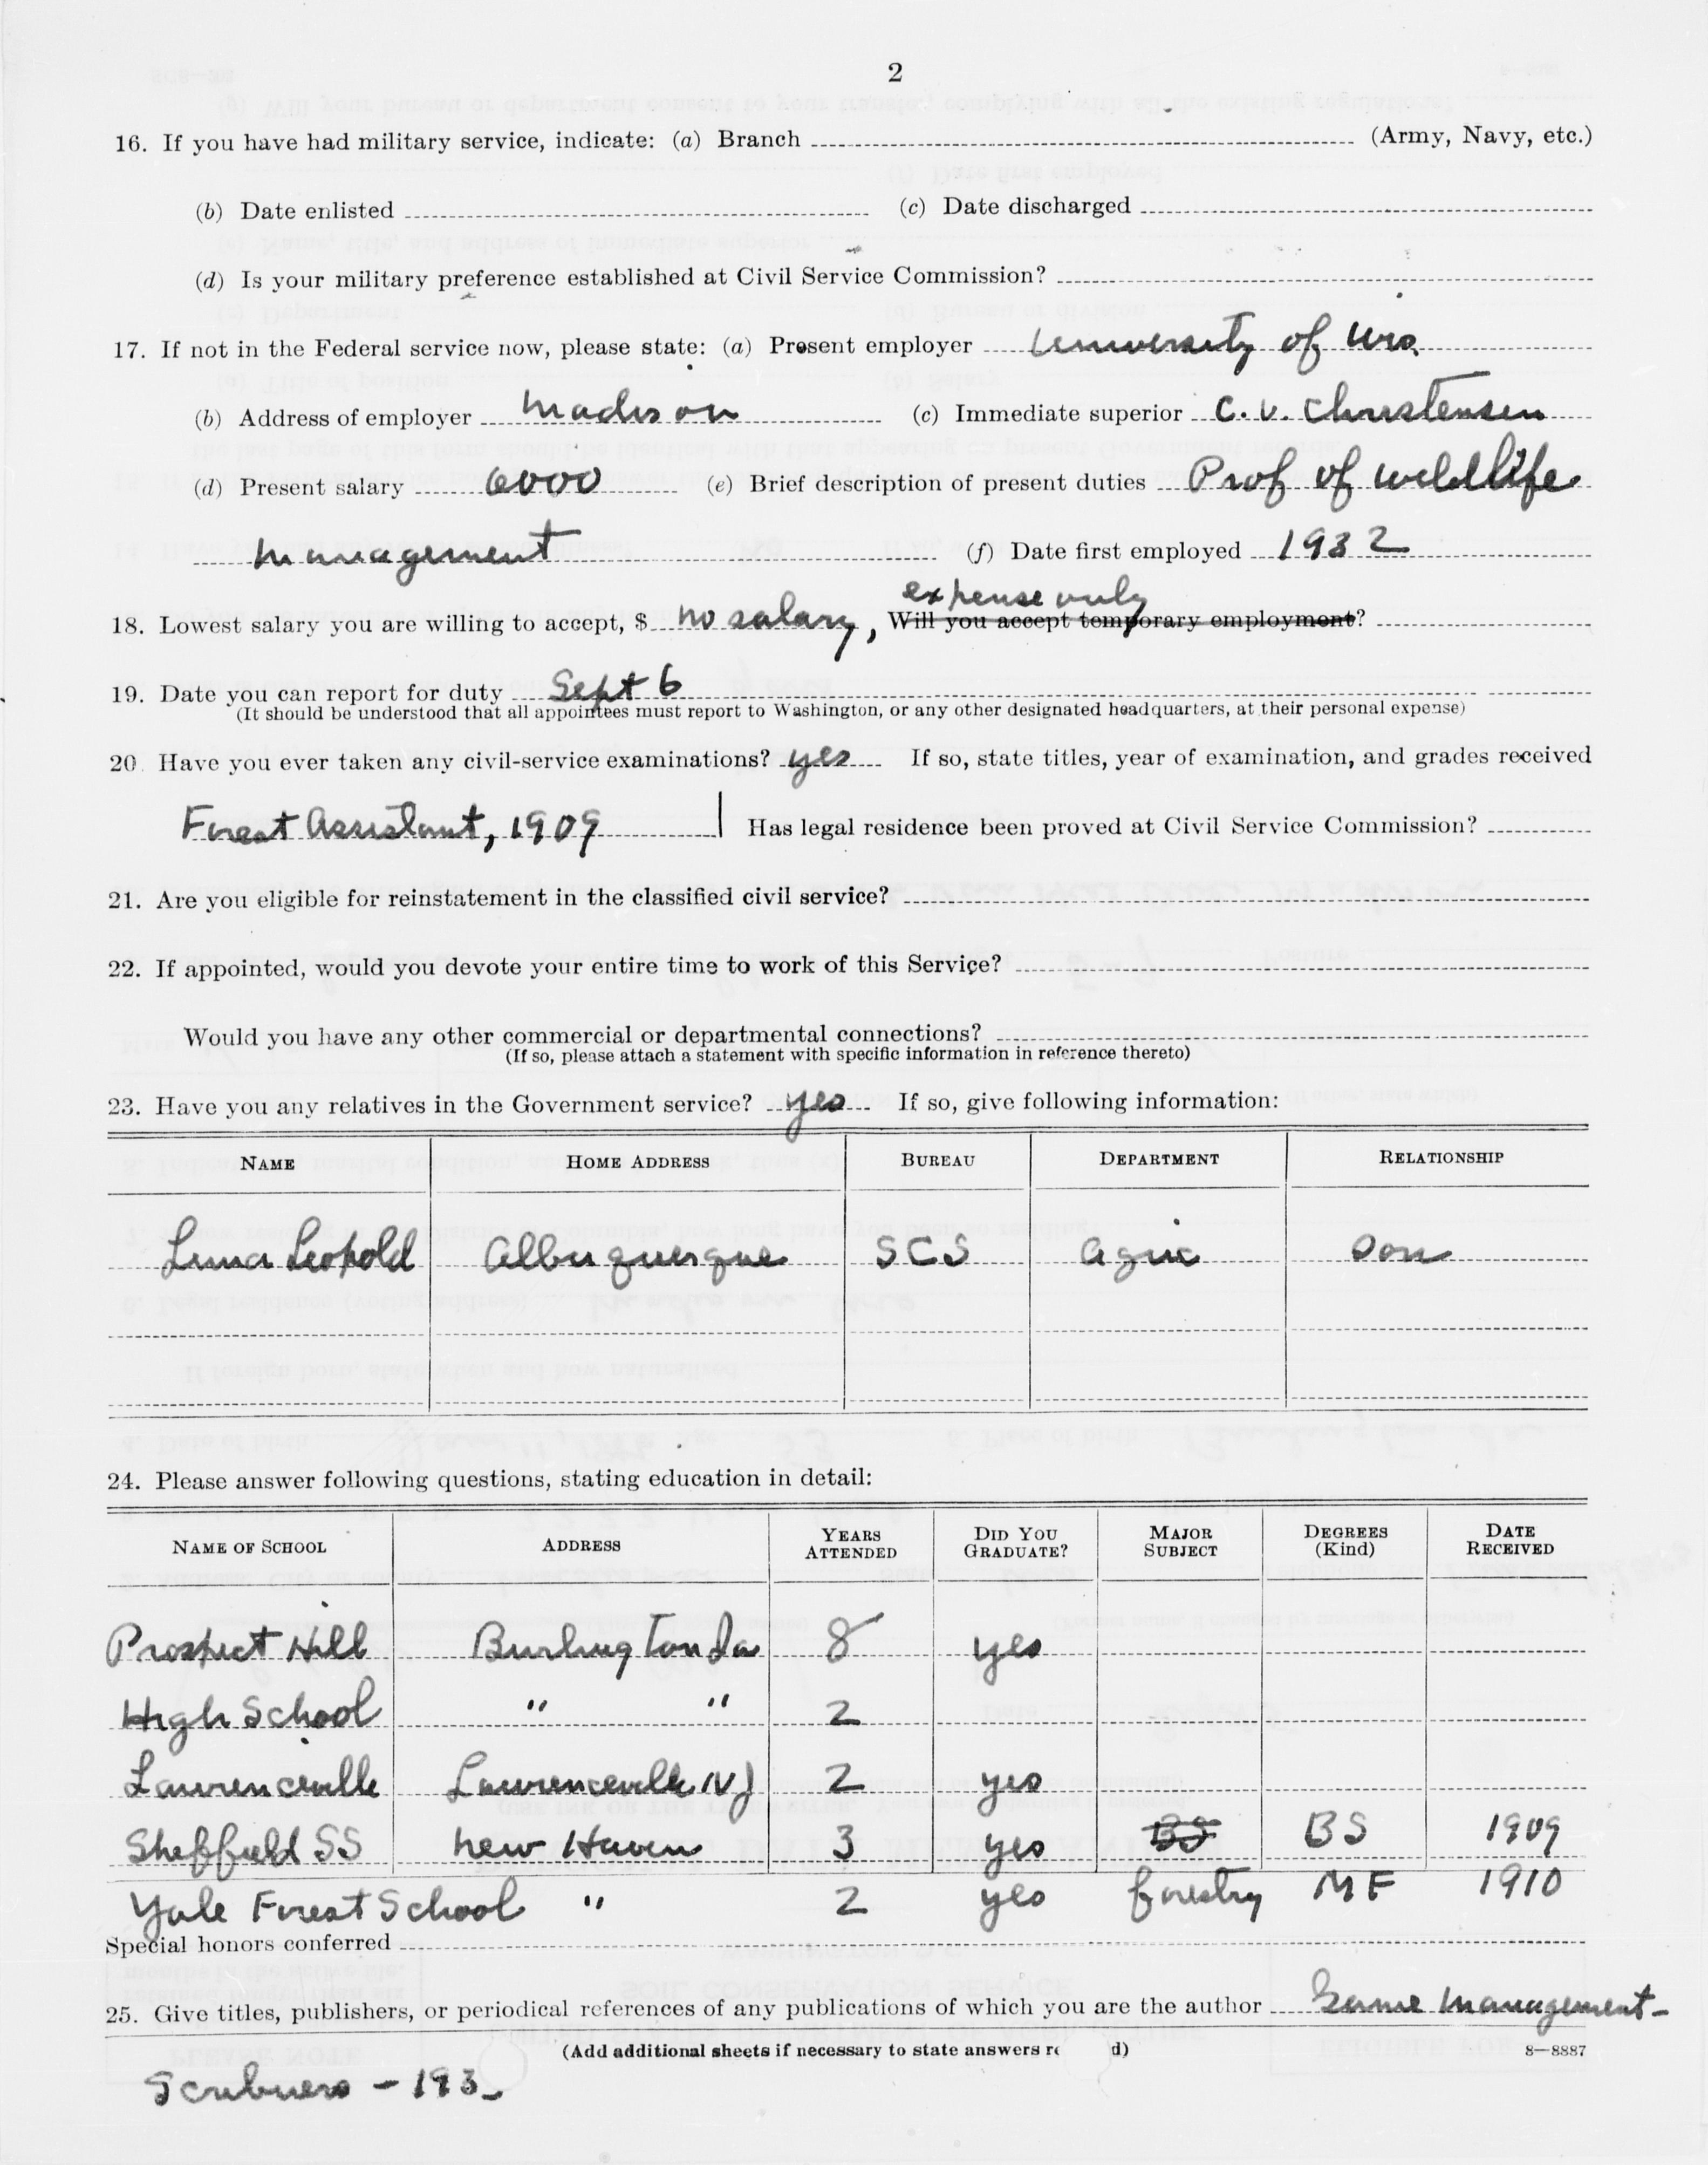 2
16. If you have had military service, indicate: (a) Branch (Army, Navy, etc.)
(b) Date enlisted (c) Date discharged
(d) Is your military preference established at Civil Service Commission?
17. If not in the Federal service now, please state: (a) Present employer University of Wis.
(b) Address of employer Madison (c) Immediate superior C. V. Christensen
(d) Present salary 6000 (e) Brief description of present duties Prof of wildlife
management (f) Date first employed 1932
expense only
18. Lowest salary you are willing to accept, $ no salary, Will you accept temporary employment?
19. Date you can report for duty Sept 6
(It should be understood that all appointees must report to Washington, or any other designated headquarters, at their personal expense)
20. Have you ever taken any civil-service examinations? yes If so, state titles, year of examination, and grades received
Forest Assistant, 1909 Has legal residence been proved at Civil Service Commission?
21. Are you eligible for reinstatement in the classified civil service?
22. If appointed, would you devote your entire time to work of this Service?
Would you have any other commercial or departmental connections?
(If so, please attach a statement with specific information in reference thereto)
23. Have you any relatives in the Government service? yes If so, give following information:
NAME HOME ADDRESS BUREAU DEPARTMENT RELATIONSHIP
Luna Leopold Albuquerque SCS Agric son
24. Please answer following questions, stating education in detail:
NAME OF SCHOOL ADDRESS YEARS ATTENDED DID YOU GRADUATE? MAJOR SUBJECT DEGREES (Kind) DATE RECEIVED
Prospect Hill Burlington Ia 8 yes
High School " " 2
Lawrenceville Lawrenceville NJ 2 yes
Sheffield SS New Haven 3 yes BS BS 1909
Yale Forest School " 2 yes forestry MF 1910
Special honors conferred
25. Give titles, publishers, or periodical references of any publications of which you are the author Game Management-
(Add additional sheets if necessary to state answers d)
8—8887
Scribners - 193_